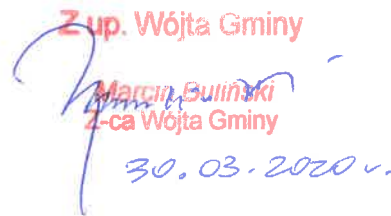 Z up. Wójta Gminy
Marcin Buliński
Z-ca Wójta Gminy
30.03.2020 r.